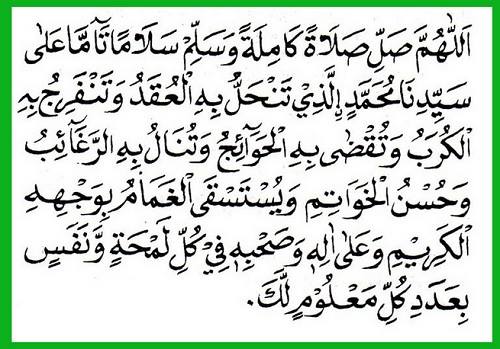 اَللّٰهُمَّ صَلِّ صَلَاةً كَامِلَةً وَسَلِّمْ سَلَامًا تَآمًّا عَلٰى
سَيِّدِنَا مُحَمَّدٍ اِلَّذِيْ تَنْحَلُّ بِهِ الْعُقَدُ وَتَنْفَرِجُ بِهِ
الْكُرَبُ وَتُقْضٰى بِهِ الْحَوَآئِجُ وَتُنَالُ بِهِ الرَّغَآئِبُ
وَحُسْنُ الْخَوَاتِمِ وَيُسْتَسْقَى الْغَمَامُ بِوَجْهِهِ
الْكَرِيْمِ وَعَلٰى اٰلِهٖ وَصَحْبِهٖ فِيْ كُلِّ لَمْحَةٍ وَّنَفَسٍ
بِعَدَدِ كُلِّ مَعْلُوْمٍ لَّكَ.